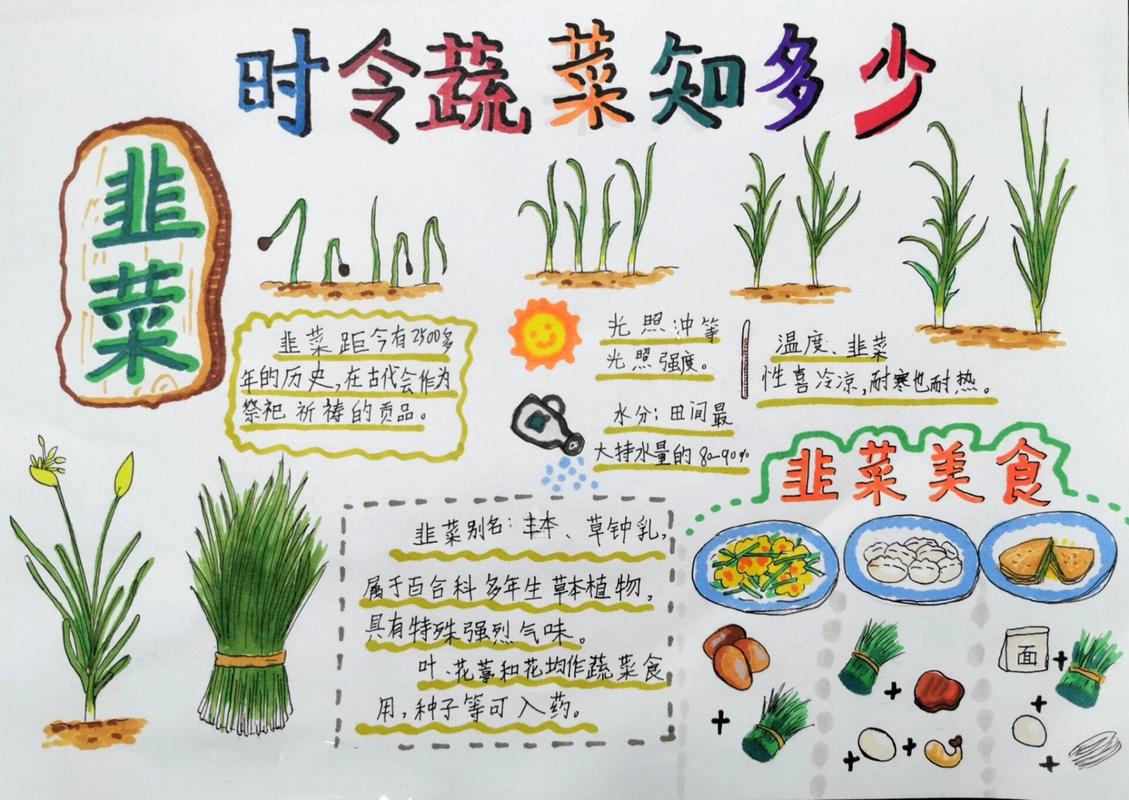 时令蔬菜知多少
韭菜
韭菜距今有2500多
年的历史,在古代会作为
祭祀祈祷的贡品。
光照冲等
光照强度。
水分:田间最
大持水量的80-90%
温度、韭菜
性喜冷凉,耐寒也耐热。
韭菜别名:丰本、草钟乳,
属于百合科多年生草本植物,
具有特殊强烈气味。
叶、花葶和花均作蔬菜食
用,种子等可入药。
韭菜美食
面